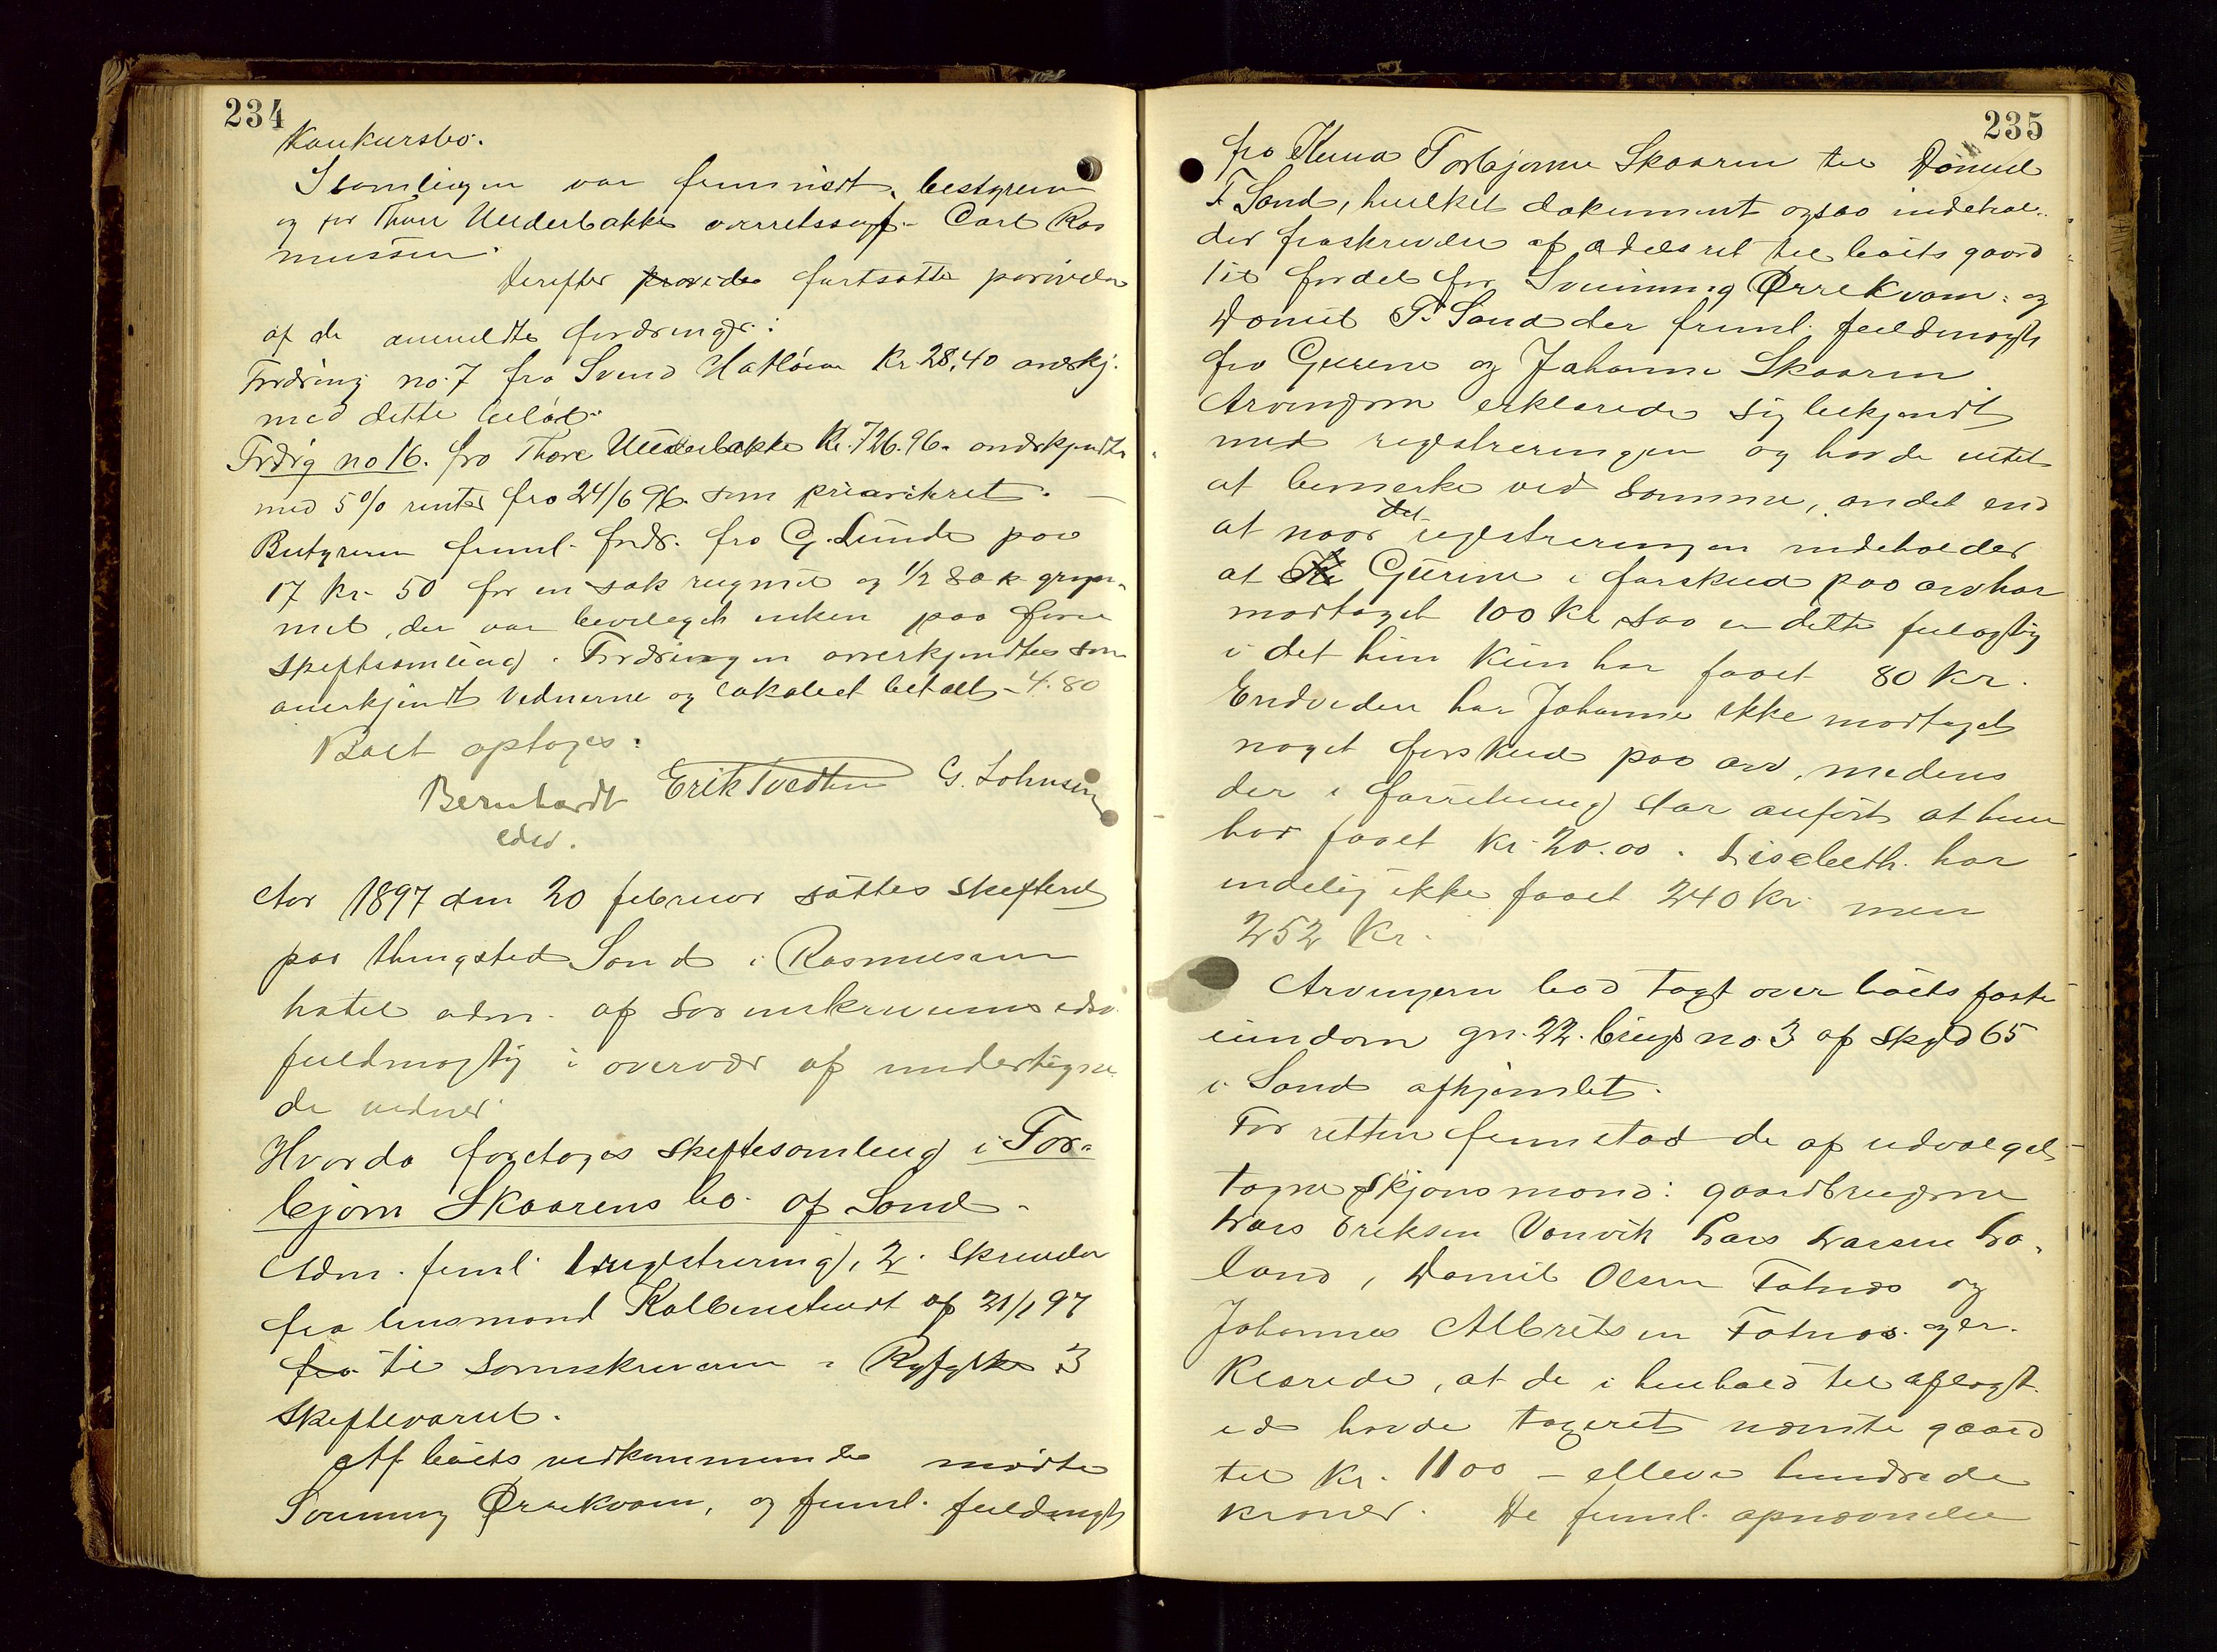 234
Konkursbo.
I samlingen var fremmødt bestyreren
og for Thore Underbakke overretssagf. Carl Ras
mussen.
Derefter fortsatte prøvelse
af de anmeldte fordringer:
Fordring no. 7 fra Svend Hatløen Kr. 28,40 anerkj.
med dette beløb.
Fordrg no 16. fra Thore Underbakke Kr. 726.96. anerkjendtes
med 5 % renter fra 24/6 96 som prioritert. —
Bestyreren freml. fordr. fra G. Lunde paa
17 kr. 50 for en sæk rugmel og 1/2 sæk gryn-
mel, der var bevilget enken paa forrige
skiftesamling. Fordringen anerkjendtes som
anerkjendt Vidnerne og lokalet betalt - 4.80
Boet optages.
Bernhardt Erik Tvedten G. Johnsen
edsv.
Aar 1897 den 20 februar sattes skifteret
paa thingsted Sand i Rasmussens
hotel adm. af sorenskriverens edsv.
fuldmægtig i overvær af undertegne
de vidner.
Hvorda foretoges skiftesamling i Tor-
bjørn Skaarens bo af Sand.
Adm. freml. 1 registrering, 2. skrivelse
fra lensmand Kolbenstvedt af 21/1 97
fra til sorenskriveren i Ryfylke 3
skiftevarsel.
Af boets vedkommende mødte
Svenning Ørrekvam, og freml. fuldmagt
235
fra Torbjørn Skaaren til Daniel
T Sand, hvilket dokument ogsaa indehol-
der fraskrivelse af odelsret til boets gaard
til fordel for Svenning Ørrekvam og
Daniel T. Sand der freml. fuldmagt
fra Gurine og Johanne Skaaren.
Arvingerne erklærede sig bekjendt
med registreringen og havde intet
at bemerke ved samme, andet end
at naar det registreringen indeholder
at Gurine i forskud paa arv har
modtaget 100 Kr saa er dette feilagtig
i det hun kun har faaet 80 kr.
Endvidere har Johanne ikke modtaget
noget forskud paa arv, medens
der i forretning staar anført at hun
har faaet kr. 20.00. Liselbeth har
endelig ikke faaet 240 kr. men
252 Kr.
Arvingerne bad taxt over boets faste
eiendom gn. 22. brugs no. 3 af skyld 65
i Sand afhjemlet.
For retten fremstod de af udvalget
tagne skjønsmænd: gaardbrugerne
Lars Eriksen Vanvik Lars Larsen Lo-
land, Daniel Olsen Fatnæs og
Johannes Albretsen Fatnæs. og er-
klærede, at de i henhold til aflagt
ed havde taxeret nævnte gaard
til kr. 1100 — elleve hundrede
kroner. De freml. opnævnelse